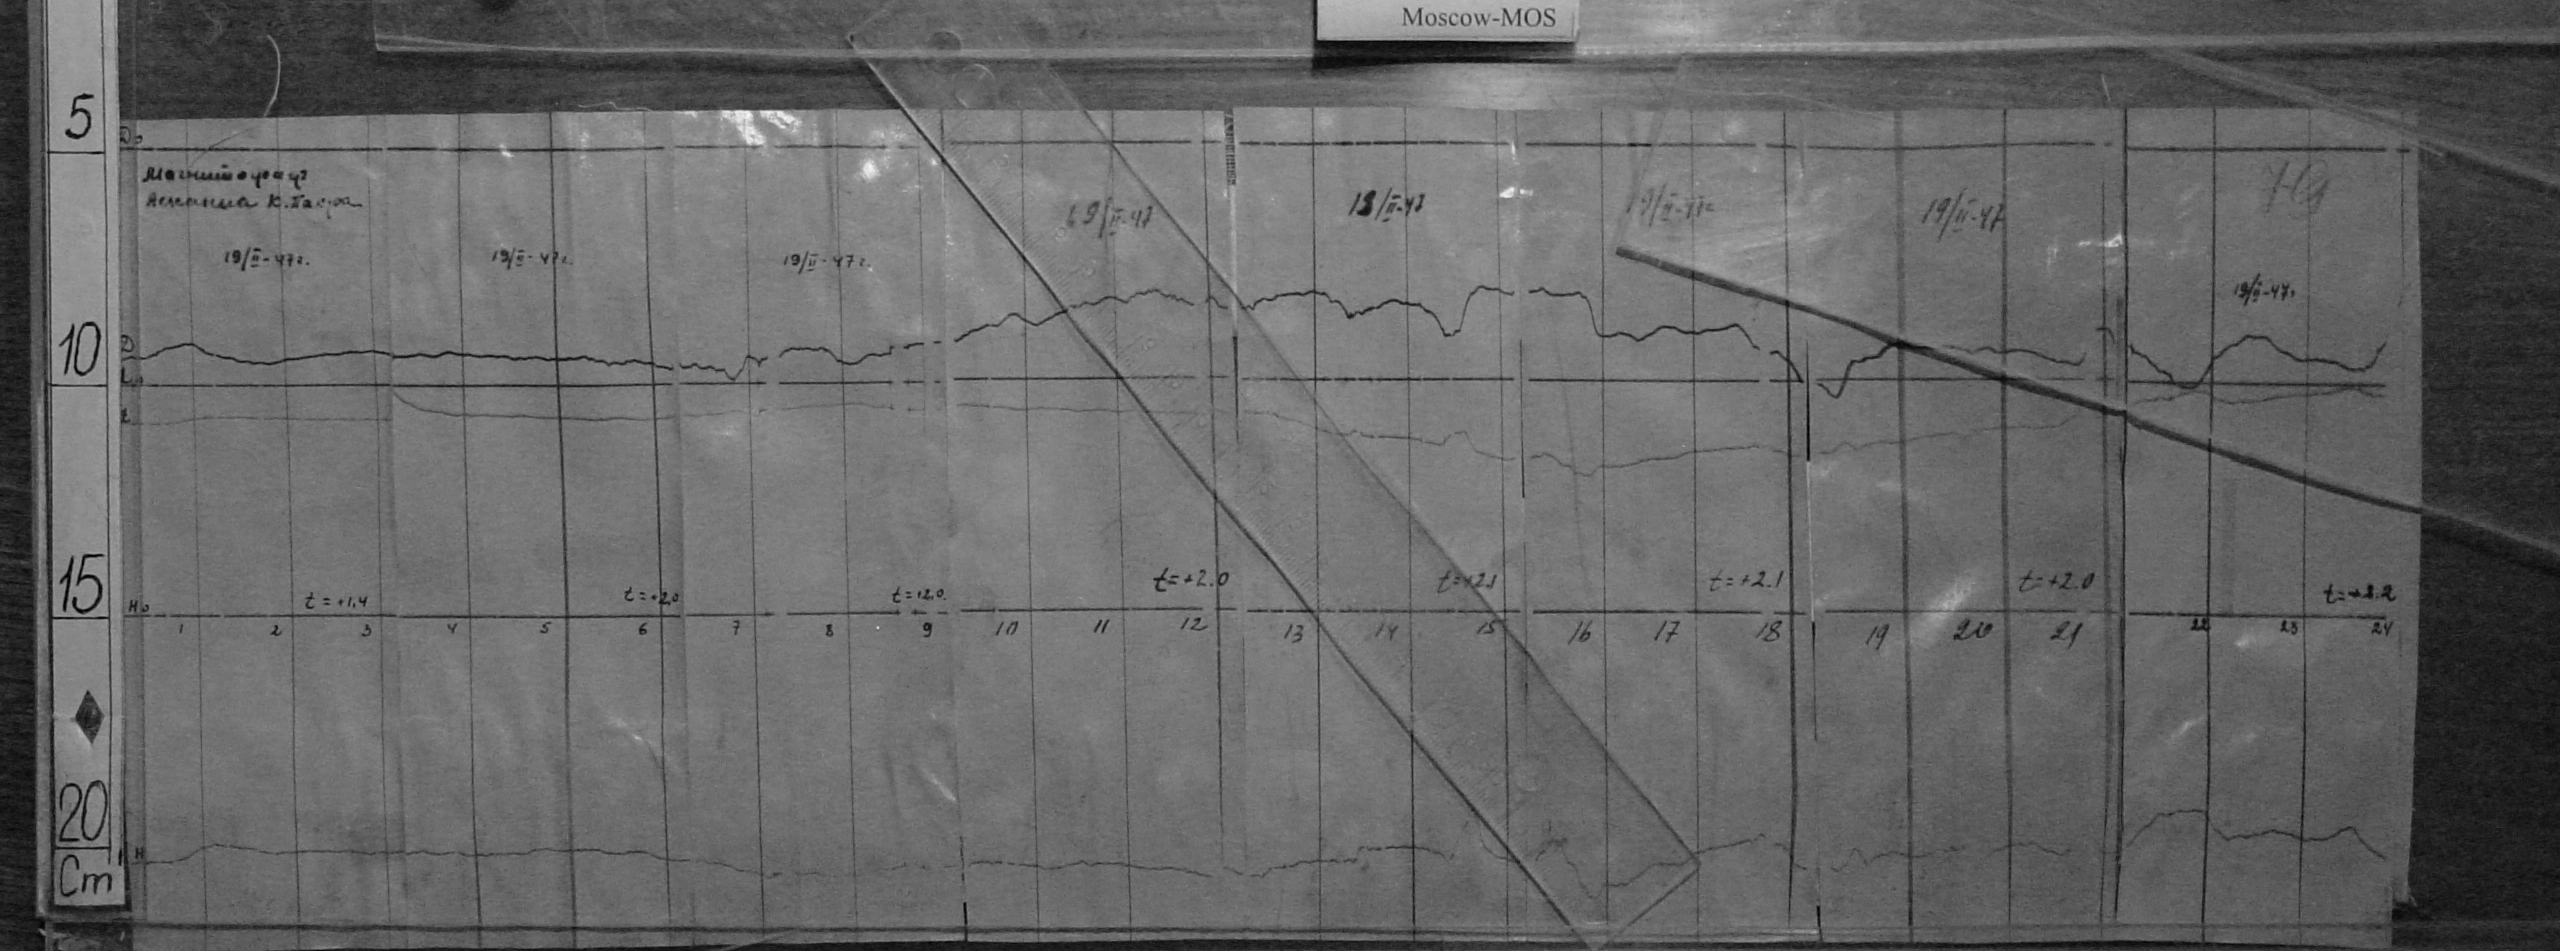 Moscow-MOS
5
10
15
20
Cm
D₀
Магнитограф
19/II-47г.
19/II-47г.
19/II-47г.
19/II-47
19/II-47
19/II-47г
19/II-47
19/II-47г
D
t
H₀
t=+1.4
t=+2.0
t=+2.0
t=+2.0
t=+2.1
t=+2.1
t=+2.0
1 2 3 4 5 6 7 8 9 10 11 12 13 14 15 16 17 18 19 20 21 22 23 24
H